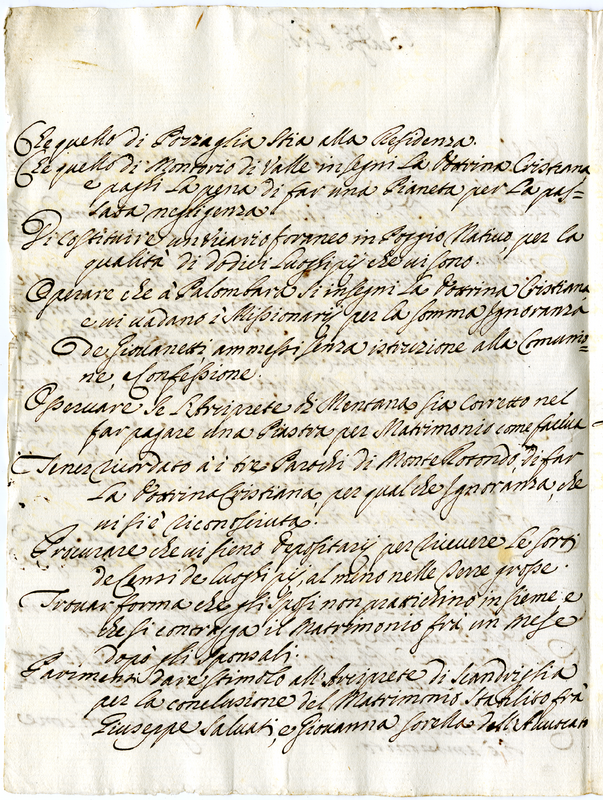 Che quello di Pozzaglia stia alla Residenza.
Che quello di Montorio di Valle insegni La Dottrina Cristiana
e paghi La pena di far una Pianeta per La pas=
sata negligenza.
Di Costituire un Vicario foraneo in Poggio Nativo per la
qualità di dodici Luoghi pij che vi sono
Operare che à Palombara si insegni La Dottrina Cristiana
e vi vadano i Missionarij per la somma Ignoranza
De Giovanetti ammessi senza istruzione alla Comunio=
ne e Confessione.
Osservare se L'Arciprete di Mentana sia Corretto nel
far pagare una Piastra per Matrimonio come faceva
Tener ricordato à i tre Parochi di Monte Rotondo di far
La Dottrina Cristiana, per qualche Ignoranza, che
vi si è riconosciuta.
Procurare che vi sieno Depositarij per ricevere Le sorti
de Censi de Luoghi pij al meno nelle Terre grosse.
Trovar forma che gli sposi non prattichino insieme e
che si contragga il Matrimonio frà un Mese
dopò gli sponsali.
Parimenti dare stimolo all'Arciprete di Scandriglia
per la conclusione del Matrimonio stabilito frà
Giuseppe Salvati, e Giovanna sorella dell'Avvocato